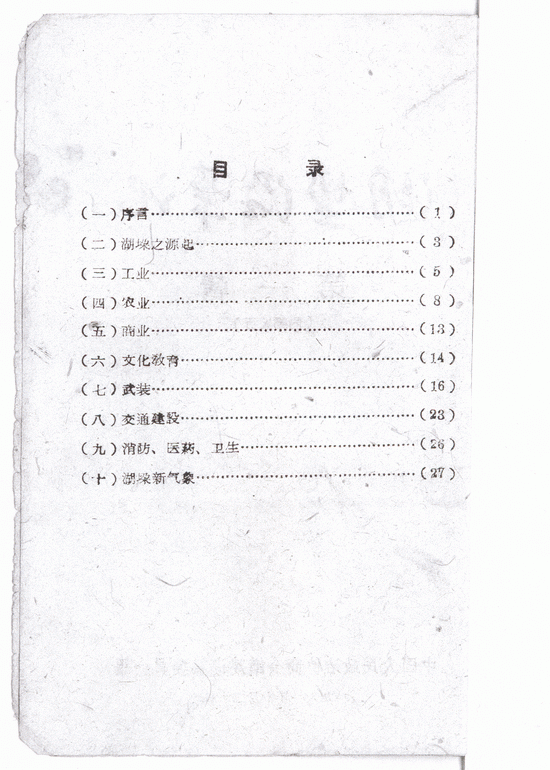 目 录
（一）序言……………………（1）
（二）湖垛之源起……………………（3）
（三）工业……………………（5）
（四）农业……………………（8）
（五）商业……………………（13）
（六）文化教育……………………（14）
（七）武装……………………（16）
（八）交通建设……………………（23）
（九）消防、医药、卫生……………………（26）
（十）湖垛新气象……………………（27）